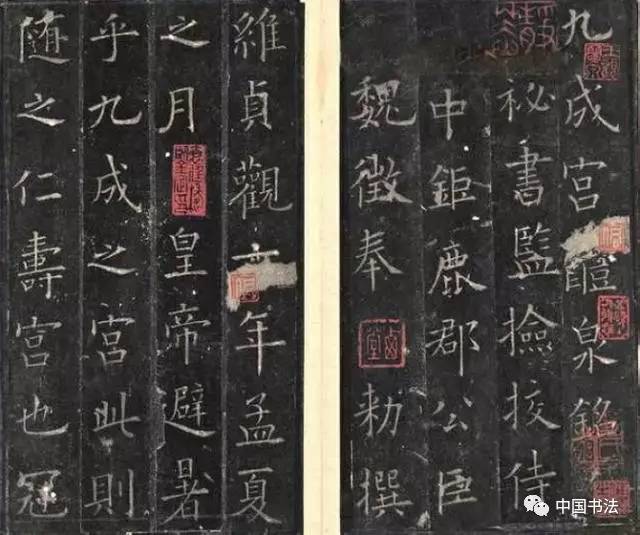 九成宫醴泉銘
秘書監撿挍侍
中鉅鹿郡公臣
魏徵奉
勑撰
維貞觀六年孟夏
之月
皇帝避暑
乎九成之宫此則
随之仁壽宫也冠
中国书法